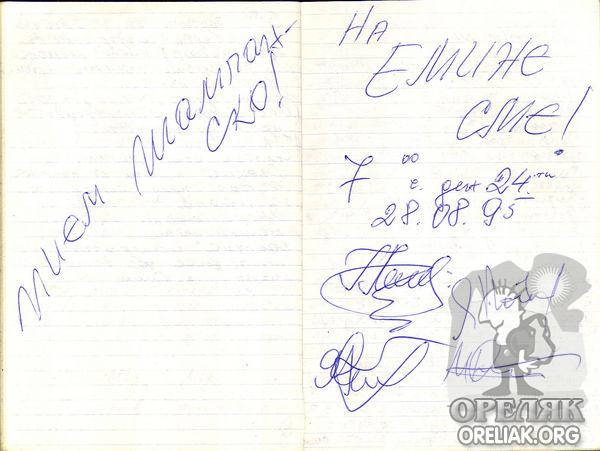 пием шампан-
ско!
На
ЕМИНЕ
СМЕ!
7 00 ч. ден 24-ти
28.08.95
ОРЕЛЯК
ORELIAK.ORG